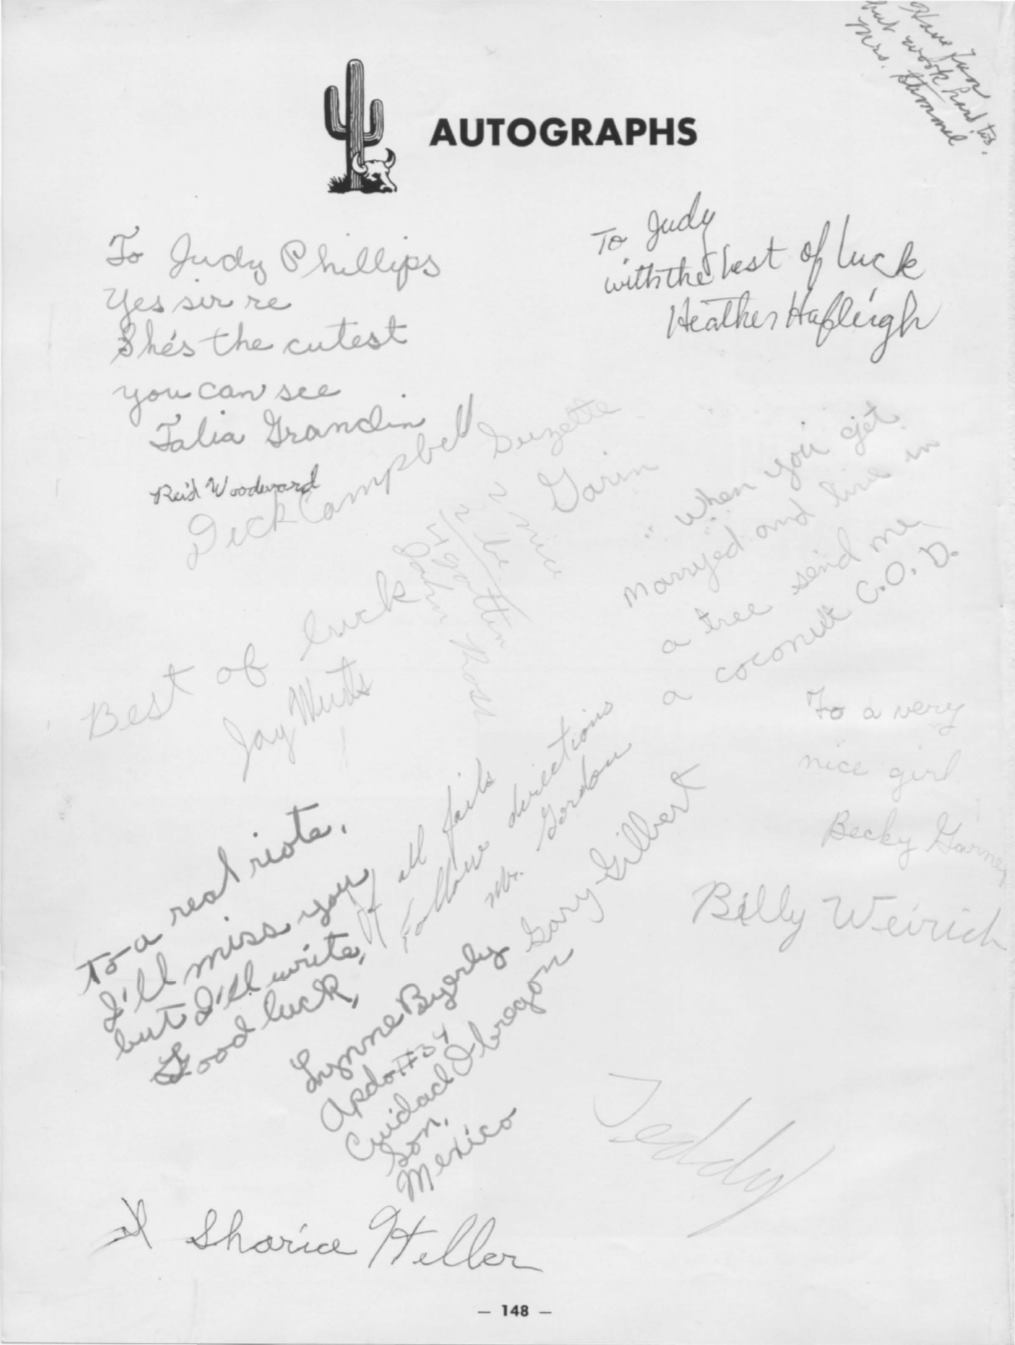 Have fun
but work hard too.
Mrs. Hummel
AUTOGRAPHS
To Judy Phillips
Yes sir re
She's the cutest
you can see
Talia Grandin
To Judy
with the best of luck
Heather Hafleigh
Reid Woodward
Dick Campbell
Suzette
Garin
2 nice
2 be
4gotten
John Ross
"When you get
marryed and live in
a tree send me
a coconut C.O.D.
Best of luck
Jay Wuts
To a very
nice girl
Becky Garney
If all fails
follow directions
Mr. Gordon
To a real riote.
I'll miss you
but I'll write,
Good luck,
Lynne Byerly
Apdo #34
Cuidad Obregon
Son,
Mexico
Gary Gilbert
Billy Weirich
Teddy
Sharice Heller
— 148 —